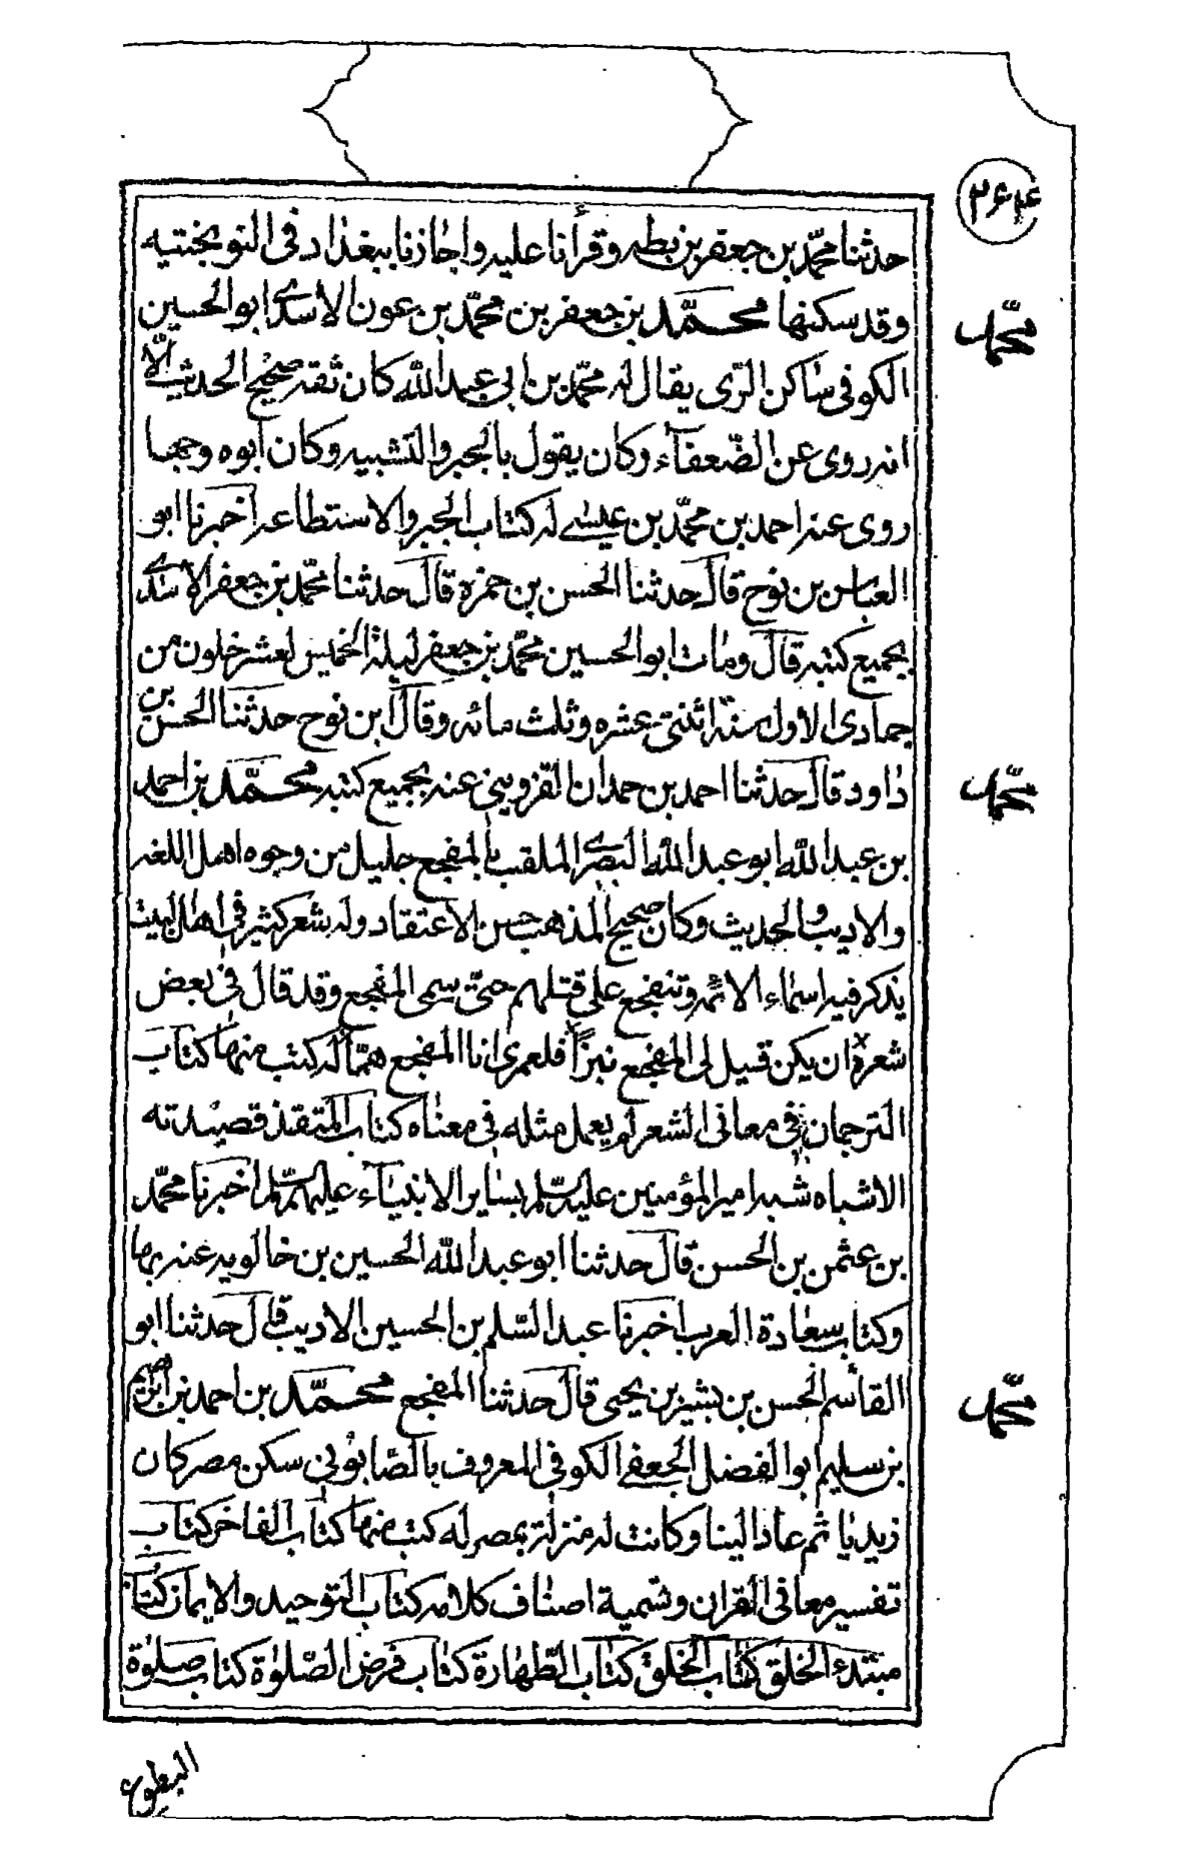 ٢٦٤
حدثنا محمّد بن جعفر بن بطه وقرأنا عليه واجازنا ببغداد فى النوبختيه
وقد سكنها محمّد بن جعفر بن محمّد بن عون الاسدى ابوالحسين
محمّد
الكوفى ساكن الرّى يقال له محمّد بن ابى عبدالله كان ثقه صحيح الحديث الّا
انه روى عن الضّعفآء وكان يقول بالجبر والتشبيه وكان ابوه وجها
روى عنه احمد بن محمّد بن عيسى له كتاب الجبر والاستطاعه اخبرنا ابو
العباس بن نوح قال حدثنا الحسن بن حمزه قال حدثنا محمّد بن جعفر الاسدى
بجميع كتبه قال ومات ابوالحسين محمّد بن جعفر ليلة الخميس لعشر خلون من
جمادى الاول سنة اثنتى عشره وثلث مائه وقال ابن نوح حدثنا الحسن بن
داود قال حدثنا احمد بن حمدان القزوينى عنه بجميع كتبه محمّد بن احمد
محمّد
بن عبدالله ابو عبدالله البصرى الملقب بالمفجع جليل من وجوه اهل اللغه
والاديب والحديث وكان صحيح المذهب حسن الاعتقاد وله شعر كثير فى اهل البيت
يذكر فيه اسماء الائمه وتنفجع على قتلهم حتىّ سمى المفجع وقد قال فى بعض
شعره ان يكن قيل لى المفجع نبزاً فلعمرى انا المفجع همّاً له كتب منها كتاب
الترجمان فى معانى الشعر لم يعمل مثله فى معناه كتاب المتقذ قصيدته
الاشباه شبه امير المؤمنين عليه السّلم بساير الانبياء عليهم السّلم اخبرنا محمّد
بن عثمن بن الحسن قال حدثنا ابو عبدالله الحسين بن خالويه عنه بها
وكتاب سعادة العرب اخبرنا عبد السّلم بن الحسين الاديب قال حدثنا ابو
القاسم الحسن بن بشير بن يحيى قال حدثنا المفجع محمّد بن احمد بن ابرهيم
محمّد
بن سليم ابوالفضل الجعفى الكوفى المعروف بالصّابونى سكن مصر كان
زيديا ثم عاد الينا وكانت له منزلة بمصر له كتب منها كتاب الفاخر كتاب
تفسير معانى القران وتسمية اصناف كلامه كتاب التوحيد والايمان كتاب
مبتدء الخلق كتاب الخلق كتاب الطّهارة كتاب فرض الصّلوة كتاب صلوة